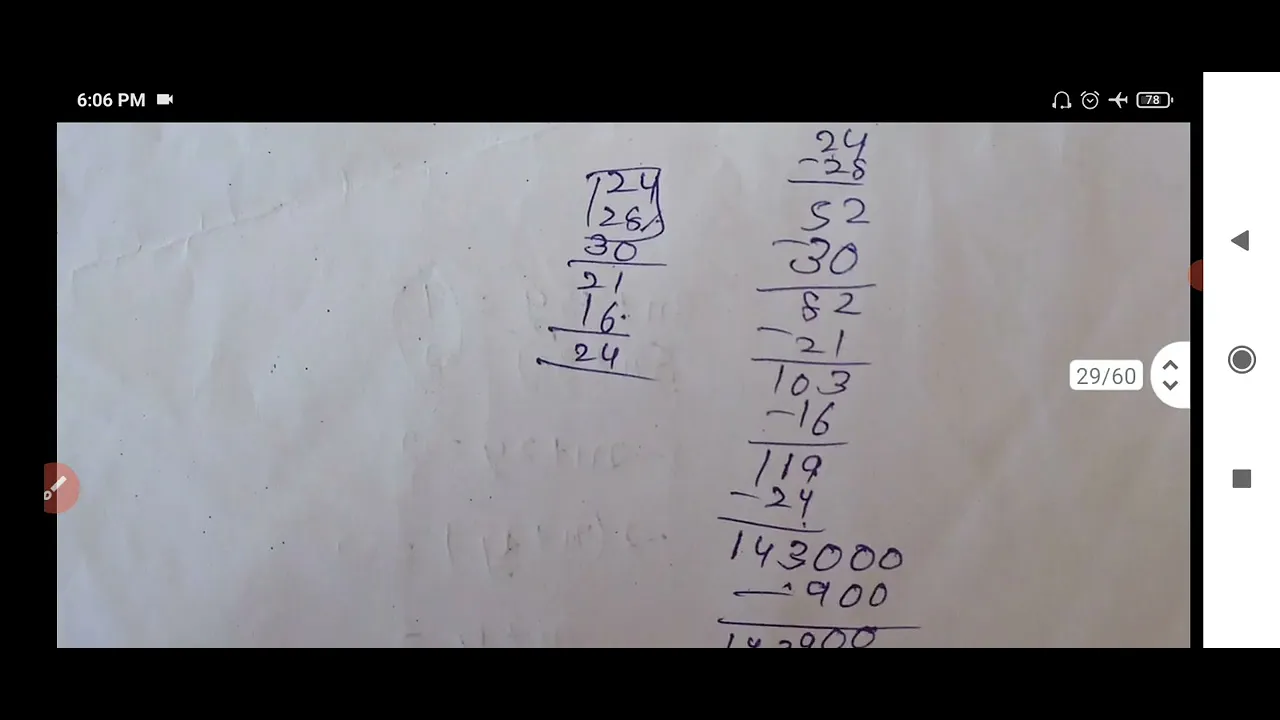 6:06 PM
78
24
28
30
21
16.
24
24
-28
52
-30
82
-21
103
-16
119
-24
143000
-900
143900
29/60